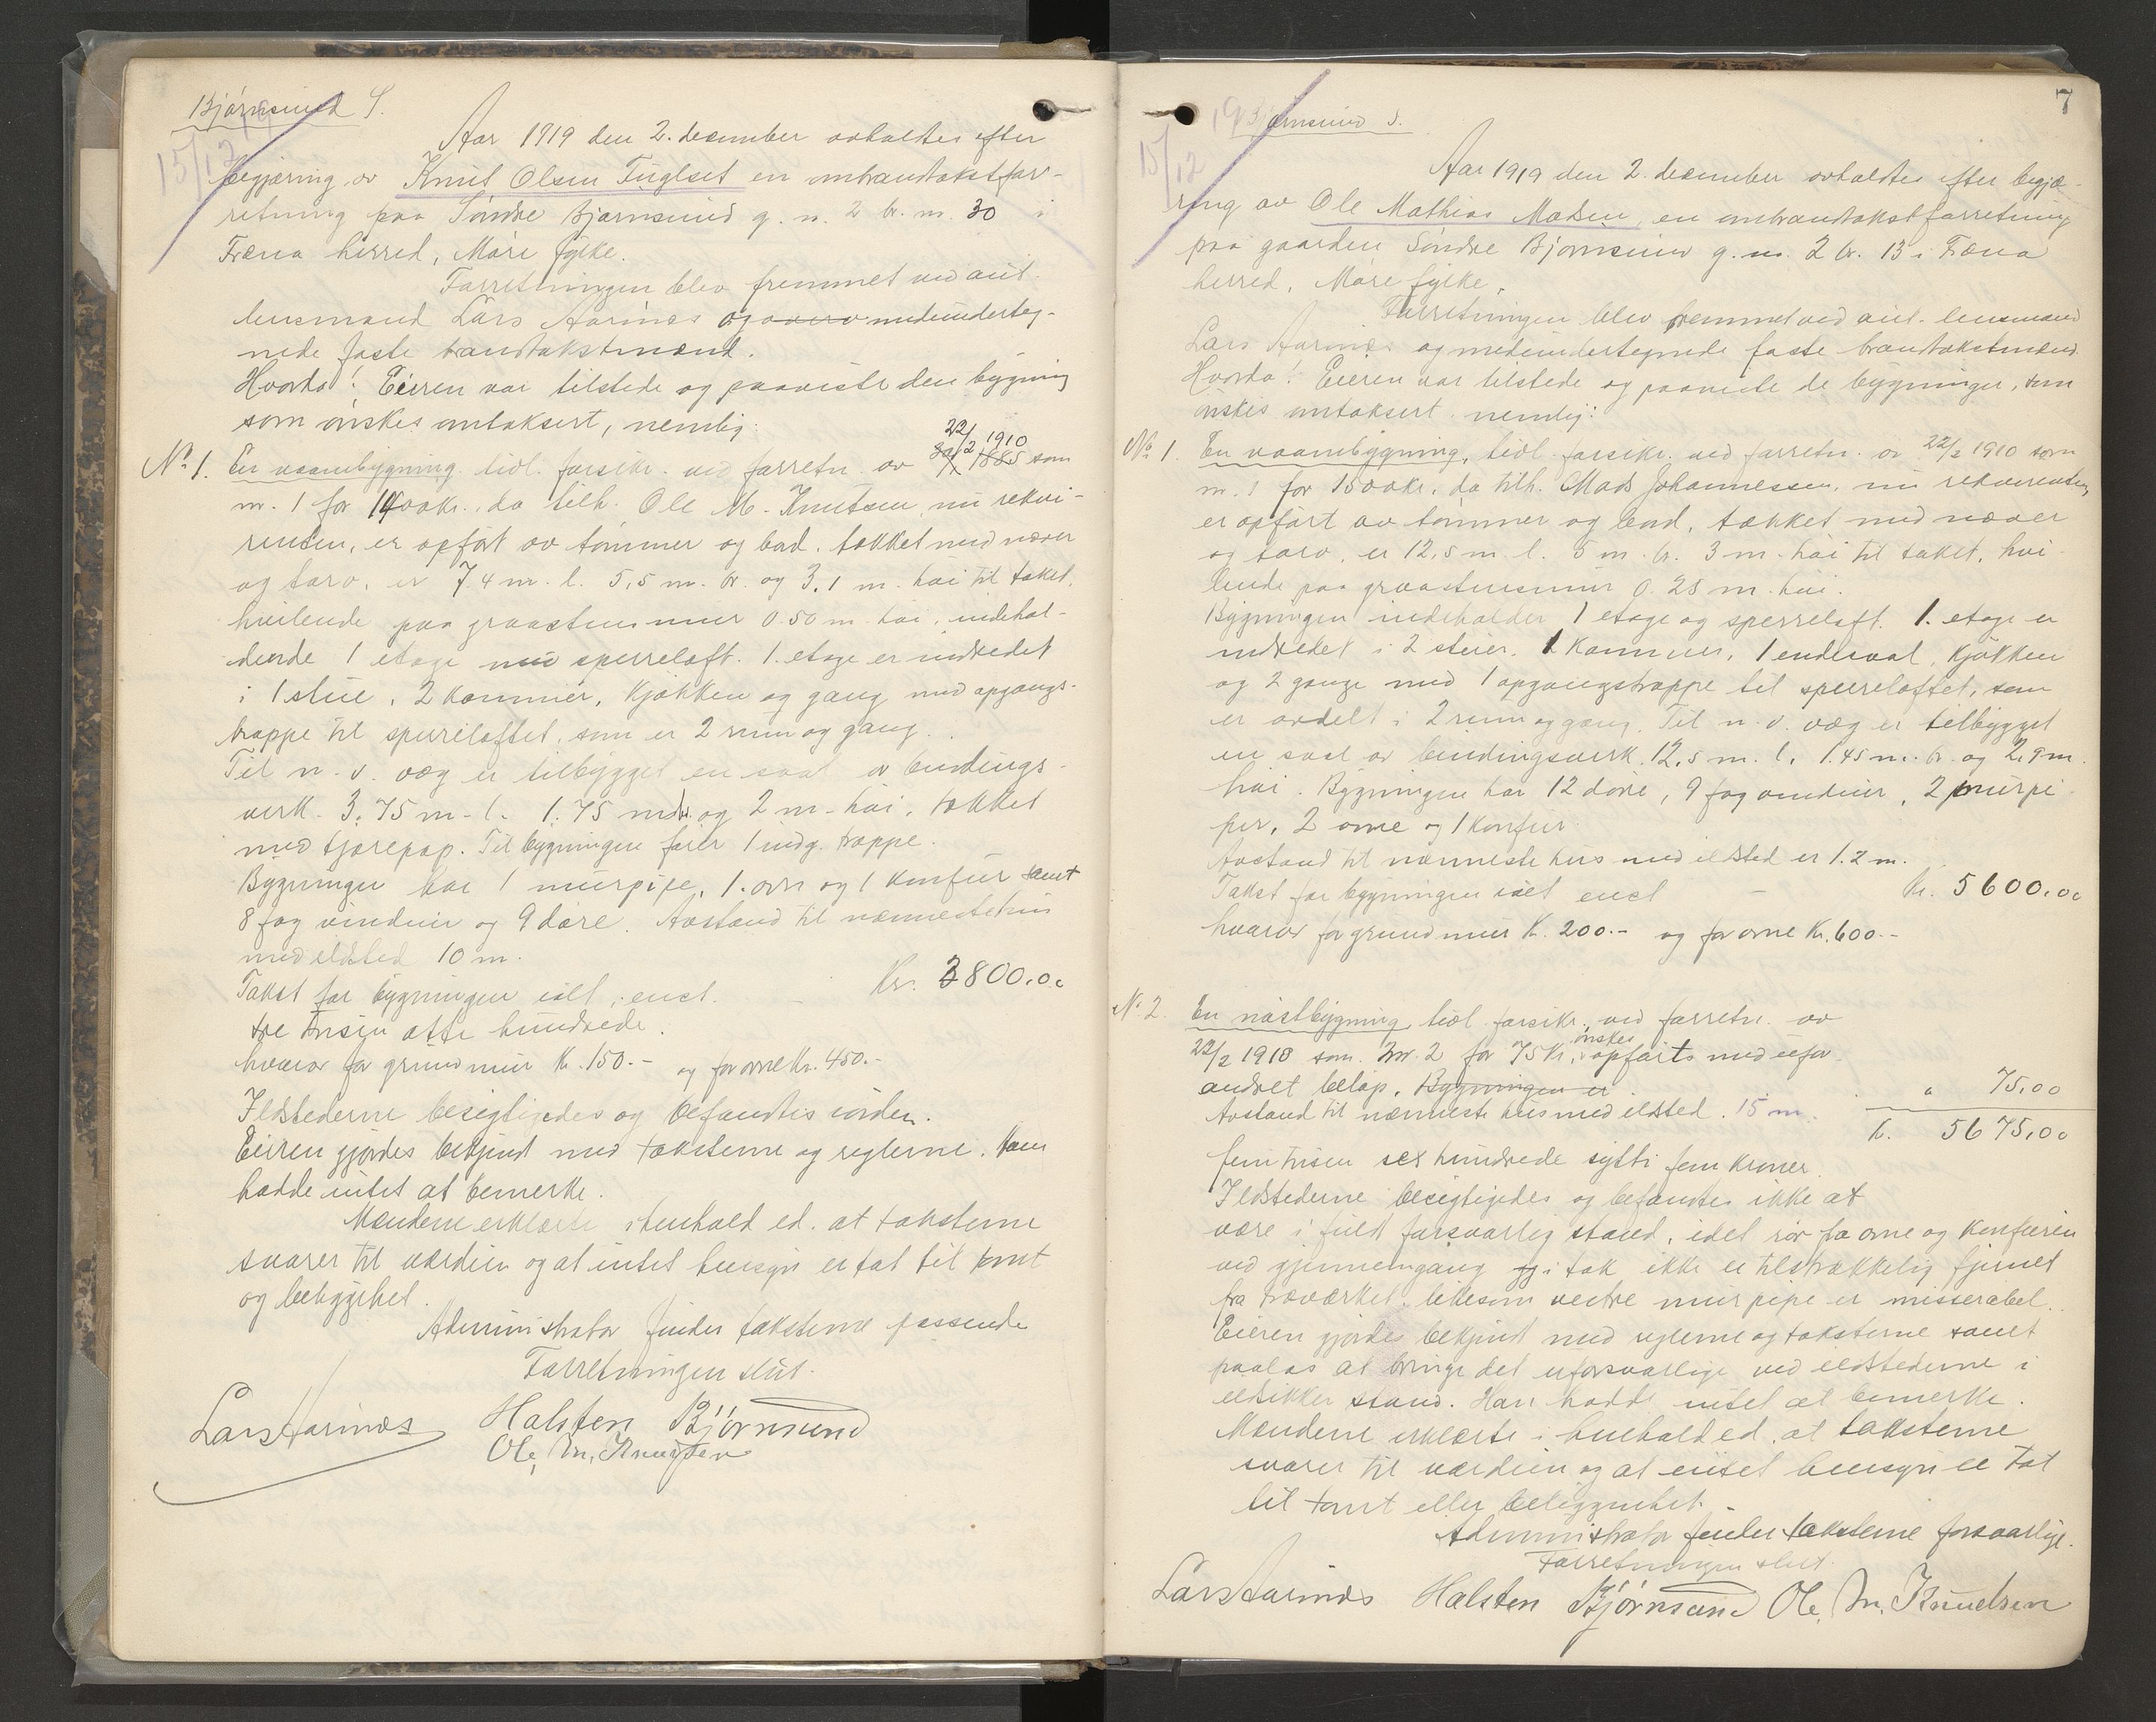 Bjørnsund S.
15/12
Aar 1919 den 2. desember avholdtes efter
begjæring av Knut Olsen Fuglset en omtaksfor-
retning paa Søndre Bjørnsund g. n. 2 br. nr. 30 i
Fræna herred, Møre fylke.
Forretningen blev fremmet ved aut.
lensmand Lars Aarinæs og medunderteg-
nede faste brandtakstmænd.
Hvorda! Eieren var tilstede og paaviste den bygning
som ønskes omtaksert, nemlig:
22/2 1910
No. 1. En vaanbygning tidl. forsikr. ved forretn. av 1885 som
nr. 1 for 1400 kr., da tilh. Ole M. Knutsen, nu rekvi-
renten, er opført av tømmer og bord, tækket med næver
og torv, er 7.4 m. l. 5,5 m. br. og 3,1 m. høi til taket,
hvilende paa graastensmur 0.50 m. høi, indehol-
dende 1 etage med sperreloft. 1. etage er indredet
i 1 stue, 2 kammer, kjøkken og gang med opgangs-
trappe til sperreloftet, som er 2 rum og gang.
Til n. v. væg er tilbygget en sval av bindings-
verk 3.75 m. l. 1.75 m br. og 2 m. høi, tækket
med tjærepap. Til bygningen fører 1 indg. trappe.
Bygningen har 1 murpipe, 1 ovn og 1 komfur samt
8 fag vinduer og 9 døre. Avstand til nærmeste hus
med ildsted 10 m.
Takst for bygningen ialt, enst. Kr. 3800.00
tre tusen otte hundrede.
hvorav for grundmur Kr. 150.- og for ovne Kr. 450.-
Ildstederne besigtigedes og befandtes iorden.
Eieren gjordes bekjendt med taksterne og reglerne. Han
hadde intet at bemerke.
Mændene erklærte i henhold ed. at taksterne
svarer til værdien og at intet hensyn er tat til tomt
og beliggenhet.
Administrator finder taksterne passende
Forretningen slut.
Lars Aarinæs Halsten Bjørnsund
Ole M. Knutsen
7
Bjørnsund S.
15/12
Aar 1919 den 2. desember avholdtes efter begjæ-
ring av Ole Mathias Madsen, en ombrandtakstforretning
paa gaarden Søndre Bjørnsund g. nr. 2 br. 13 i Fræna
herred, Møre fylke.
Forretningen blev fremmet ved aut. lensmand
Lars Aarinæs og medundertegnede faste brandtakstmænd.
Hvorda! Eieren var tilstede og paaviste de bygninger, som
ønskes omtaksert, nemlig:
No. 1. En vaanbygning, tidl. forsikr. ved forretn. av 22/2 1910 som
nr. 1 for 1500 kr. da tilh. Mads Johannessen, nu rekvirenten,
er opført av tømmer og bord, tækket med næver
og torv, er 12,5 m. l. 5 m. br. 3 m. høi til taket, hvi-
lende paa graastensmur 0.25 m. høi.
Bygningen indeholder 1 etage og sperreloft. 1. etage er
indredet i 2 stuer, 1 kammer, 1 endesval, kjøkken
og 2 gange med 1 opgangstrappe til sperreloftet, som
er avdelt i 2 rum og gang. Til n. v. væg er tilbygget
en sval av bindingsverk 12,5 m. l. 1.45 m. br. og 2,9 m.
høi. Bygningen har 12 døre, 9 fag vinduer, 2 murpi-
per, 2 ovne og 1 komfur
Avstand til nærmeste hus med ildsted er 1.2 m.
Takst for bygningen ialt enst Kr. 5600.00
hvorav for grundmur Kr. 200.- og for ovne Kr. 600.-
No. 2. En nøstbygning tidl. forsikr. ved forretn. av
22/2 1910 som nr. 2 for 75 kr., ønskes opført med uefor-
andret beløp. Bygningen er " 75,00
Avstand til nærmeste hus med ildsted. 15 m.
K. 5675,00
fem tusen sex hundrede sytti fem kroner.
Ildstederne besigtigedes og befandtes ikke at
være i fuld forsvarlig stand, idet rør fra ovne og komfuren
ved gjennemgang i tak ikke er tilstrækkelig fjernet
fra træverket, likesom vestre murpipe er misserabel.
Eieren gjordes bekjendt med reglerne og taksterne samt
paalas at bringe det uforsvarlige ved ildstederne i
ildsikker stand. Han hadde intet at bemerke.
Mændene erklærte i henhold ed. at taksterne
svarer til værdien og at intet hensyn er tat
til tomt eller beliggenhet.
Administrator finder taksterne forsvarlige.
Forretningen slut.
Lars Aarinæs Halsten Bjørnsund Ole M. Knudsen